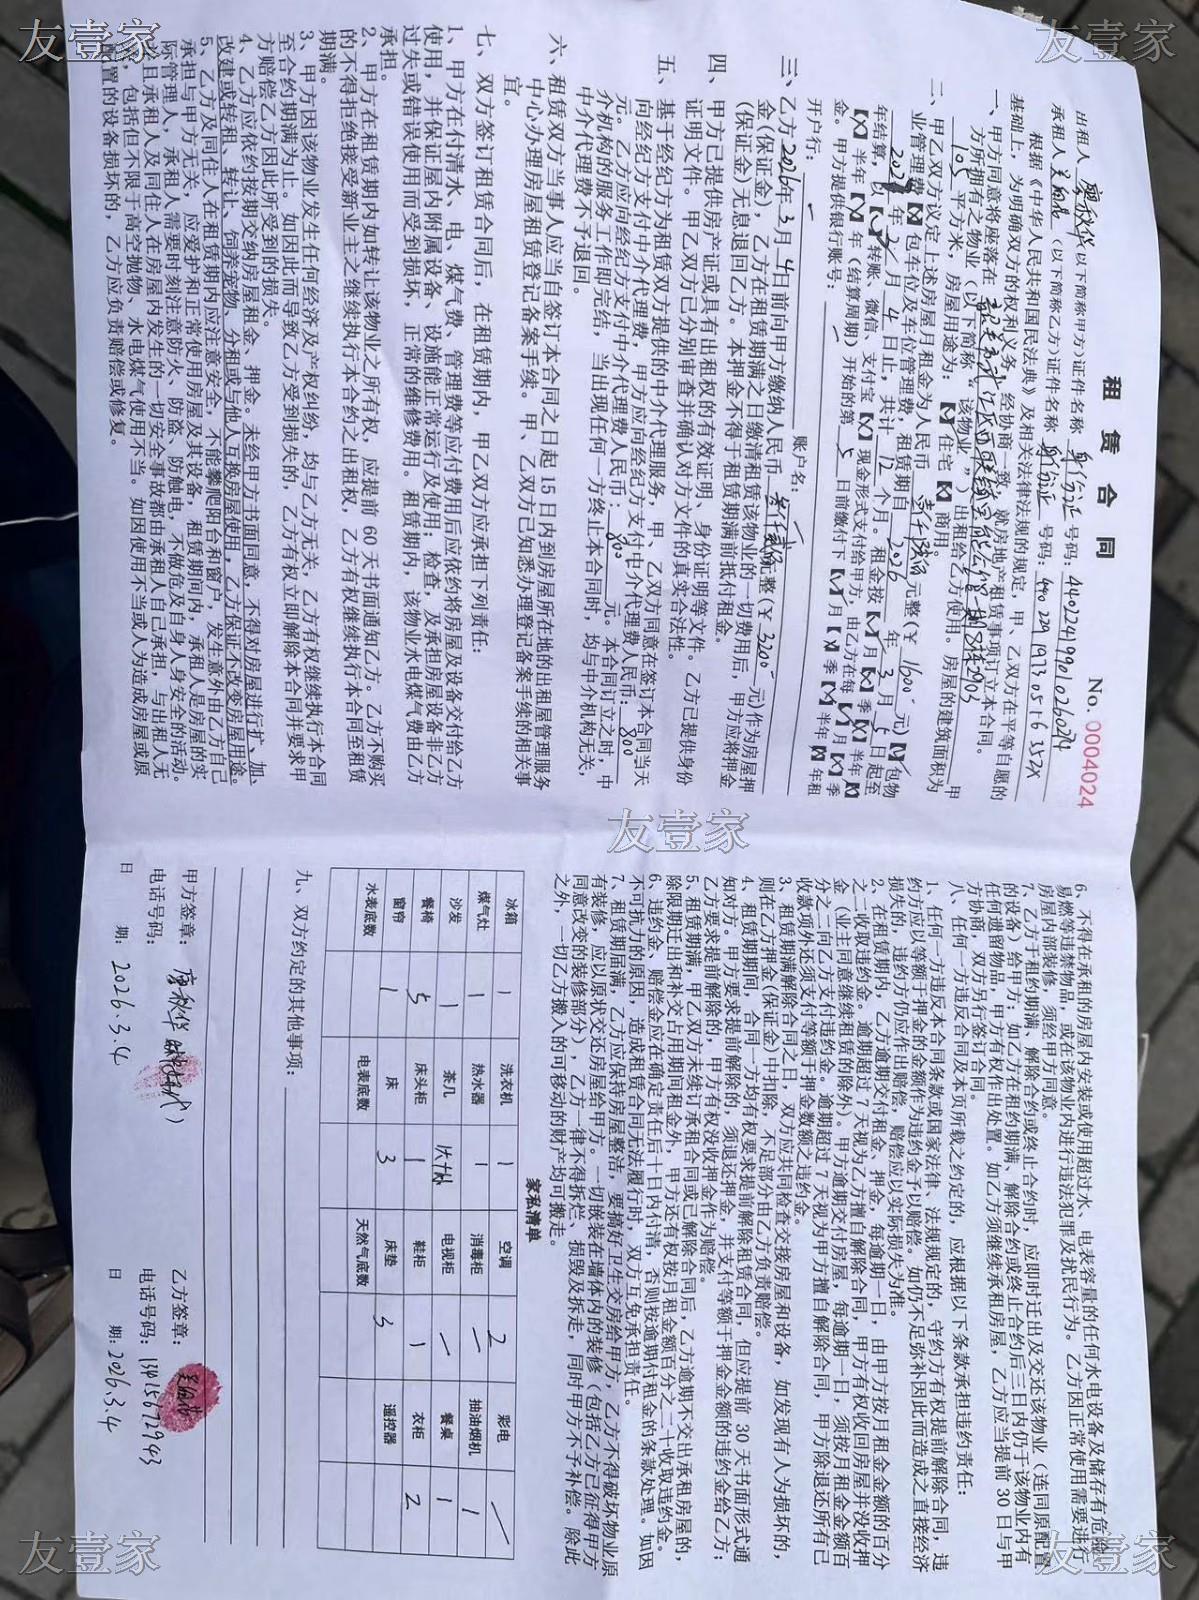 友壹家
友壹家
租赁合同
No. 0004024
出租人 (以下简称甲方)证件名称 身份证 号码:
承租人 (以下简称乙方)证件名称 身份证 号码:
根据《中华人民共和国民法典》及相关法律法规的规定,甲、乙双方在平等自愿的
基础上,为明确双方的权利义务,经协商一致,就房地产租赁事项订立本合同。
一、甲方同意将座落在 甲
方所拥有之物业(以下简称“该物业”)出租给乙方使用。房屋的建筑面积为
105 平方米,房屋用途为:【】住宅【】商用。
二、甲乙双方议定上述房屋月租金为人民币 壹仟陆佰 元整(¥ 1600 元)【】包物
业管理费【】包车位及车位管理费,租赁期自 2026 年 3 月 5 日起至
年 月 4 日止,共计 12 个月。租金按【】月【】季【】半年【】
年结算,以【】转账、微信、支付宝【】现金形式支付给甲方,由乙方在每【】月【】季
【】半年【】年(结算周期)开始的第 5 日前缴付下【】月【】季【】半年【】年租
金。甲方提供银行账号:
开户行: 账户名:
三、乙方2026年3月4日前向甲方缴纳人民币 叁仟贰佰 元整(¥ 3200 元)作为房屋押
金(保证金),乙方在租赁期满之日缴清租赁该物业的一切费用后,甲方应将押金
(保证金)无息退回乙方。本押金不得于租赁期满前抵付租金。
四、甲方已提供房产证或具有出租权的有效证明、身份证明等文件。乙方已提供身份
证明文件。甲乙双方已分别审查并确认对方文件的真实合法性。
五、基于经纪方为租赁双方提供的中介代理服务,甲、乙双方同意在签订本合同当天
向经纪方支付中介代理费,甲方应向经纪方支付中介代理费人民币: 800
元。乙方应向经纪方支付中介代理费人民币: 800 元。本合同订立之时,中
介机构的服务工作即完结,当出现任何一方终止本合同时,均与中介机构无关,
中介代理费不予退回。
六、租赁双方当事人应当自签订本合同之日起 15 日内到房屋所在地的出租屋管理服务
中心办理房屋租赁登记备案手续。甲、乙双方已知悉办理登记备案手续的相关事
宜。
七、双方签订租赁合同后,在租赁期内,甲乙双方应承担下列责任:
1、甲方在付清水、电、煤气费、管理费等应付费用后应依约将房屋及设备交付给乙方
使用,并保证屋内附属设备、设施能正常运行及使用;检查,及承担房屋设备非乙方
过失或错误使用而受到损坏,正常的维修费用。租赁期内,该物业水电煤气费由乙方
承担。
2、甲方在租赁期内如转让该物业之所有权,应提前 60 天书面通知乙方。乙方不购买
的不得拒绝接受新业主之继续执行本合约之出租权,乙方有权继续执行本合同至租赁
期满。
3、甲方因该物业发生任何经济及产权纠纷,均与乙方无关,乙方有权继续执行本合同
至合约期满为止。如因此而导致乙方受到损失的,乙方有权立即解除本合同并要求甲
方赔偿乙方因此所受到的损失。
4、乙方应依约按期交纳房屋租金、押金。未经甲方书面同意,不得对房屋进行扩、加、
改建或转租、转让、饲养宠物、分租或与他人互换房屋使用,乙方保证不改变房屋用途。
5、乙方及同住人在租赁期内应注意安全,不能攀爬阳台和窗户,发生意外由乙方自己
承担与甲方无关,应爱护和正常使用房屋及其设备,租赁期间内,承租人是房屋的实
际管理人,承租人需要时刻注意防火、防盗、防触电,不做危及自身人身安全的活动。
且承租人及同住人在房屋内发生的一切安全事故都由承租人自己承担,与出租人无
,包括但不限于高空抛物、水电煤气使用不当。如因使用不当或人为造成房屋或原
配置的设备损坏的,乙方应负责赔偿或修复。
友壹家
6、不得在承租的房屋内安装或使用超过水、电表容量的任何水电设备及储存有危险
易燃等违禁物品,或在该物业内进行违法犯罪及扰民行为。乙方因正常使用需要进行
房屋内部装修,须经甲方同意。
7、乙方于租约期满、解除合约或终止合约时,应即时迁出及交还该物业(连同原配置
的设备)给甲方;如乙方在租约期满、解除合约或终止合约后三日内仍于该物业内有
任何遗留物品,甲方有权作出处置。如乙方须继续承租房屋,乙方应当提前 30 日与甲
方协商,双方另行签订合同。
八、任何一方违反合同及本页所载之约定的,应根据以下条款承担违约责任:
1、任何一方违反本合同条款或国家法律、法规规定的,守约方有权提前解除合同,违
约方应以等额于押金的金额作为违约金予以赔偿。如仍不足弥补因此而造成之直接经济
损失的,违约方仍应作出赔偿,赔偿应以实际损失为准。
2、在租赁期内,乙方逾期交付租金、押金,每逾期一日,由甲方按月租金金额的百分
之二收取违约金。逾期超过 7 天视为乙方擅自解除合同,甲方有权收回房屋并没收押
金(业主同意继续租赁的除外)。甲方逾期交付房屋,每逾期一日,须按月租金金额百
分之二向乙方支付违约金。逾期超过 7 天视为甲方擅自解除合同,甲方除退还所有已
收款项外还须支付等额于押金数额之违约金。
3、租赁期满解除合同之日,双方应共同检查交接房屋和设备,如发现有人为损坏的,
则在乙方押金(保证金)中扣除,不足部分由乙方负责赔偿。
4、租赁期期间,合同一方均有权要求提前解除租赁合同,但应提前 30 天书面形式通
知对方。甲方要求提前解除的,须退还押金,并支付等额于押金金额的违约金给乙方;
乙方要求提前解除的,甲方有权没收押金作为赔偿。
5、租赁期满,甲乙双方未续订承租合同或已解除合同后,乙方逾期不交出承租房屋的,
除限期迁出和补交占用期间租金外,甲方还有权按月租金额百分之二十收取违约金。
6、违约金、赔偿金应在确定责任后十日内付清,否则按逾期付租金的条款处理。如因
不可抗力的原因,造成租赁合同无法履行时,双方互免承担责任。
7、租赁期届满,乙方应保持房屋整洁,要搞好卫生交房给甲方,乙方不得破坏物业原
有装修,应以原状交还房屋给甲方。一切嵌装在墙体内的装修(包括乙方已征得甲方
同意改变的装修部分),乙方一律不得拆烂、损毁及拆走,同时甲方不予补偿。除此
之外,一切乙方搬入的可移动的财产均可搬走。
家私清单
冰箱 1 洗衣机 1 空调 2 彩电 /
煤气灶 1 热水器 1 消毒柜 / 抽油烟机 1
沙发 1 茶几 电视柜 / 餐桌 1
餐椅 5 床头柜 1 鞋柜 1 衣柜 2
窗帘 1 床 3 床垫 3 遥控器
水表底数 电表底数 天然气底数
九、双方约定的其他事项:
甲方签章: 乙方签章:
电话号码: 电话号码: 13415672943
日 期: 2026.3.4 日 期: 2026.3.4
友壹家
友壹家